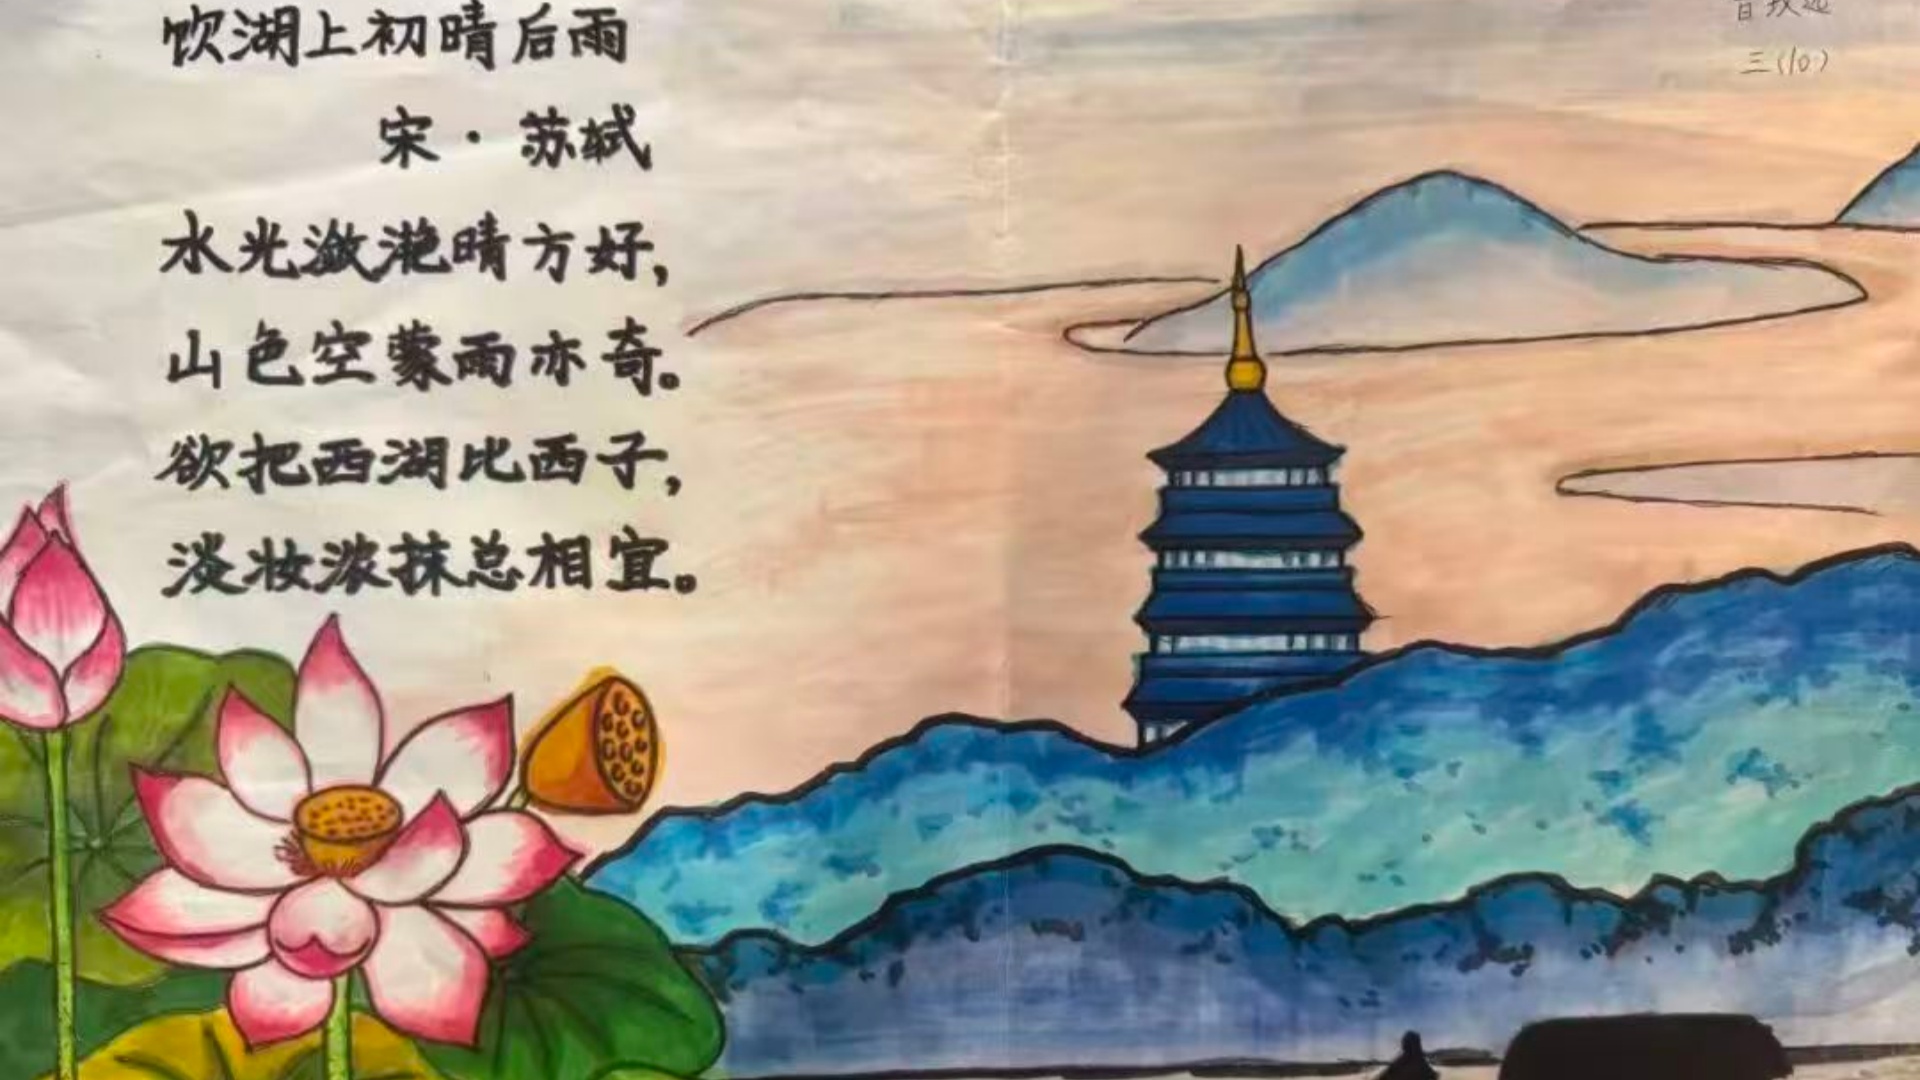 饮湖上初晴后雨
宋·苏轼
水光潋滟晴方好，
山色空蒙雨亦奇。
欲把西湖比西子，
淡妆浓抹总相宜。
三(10)